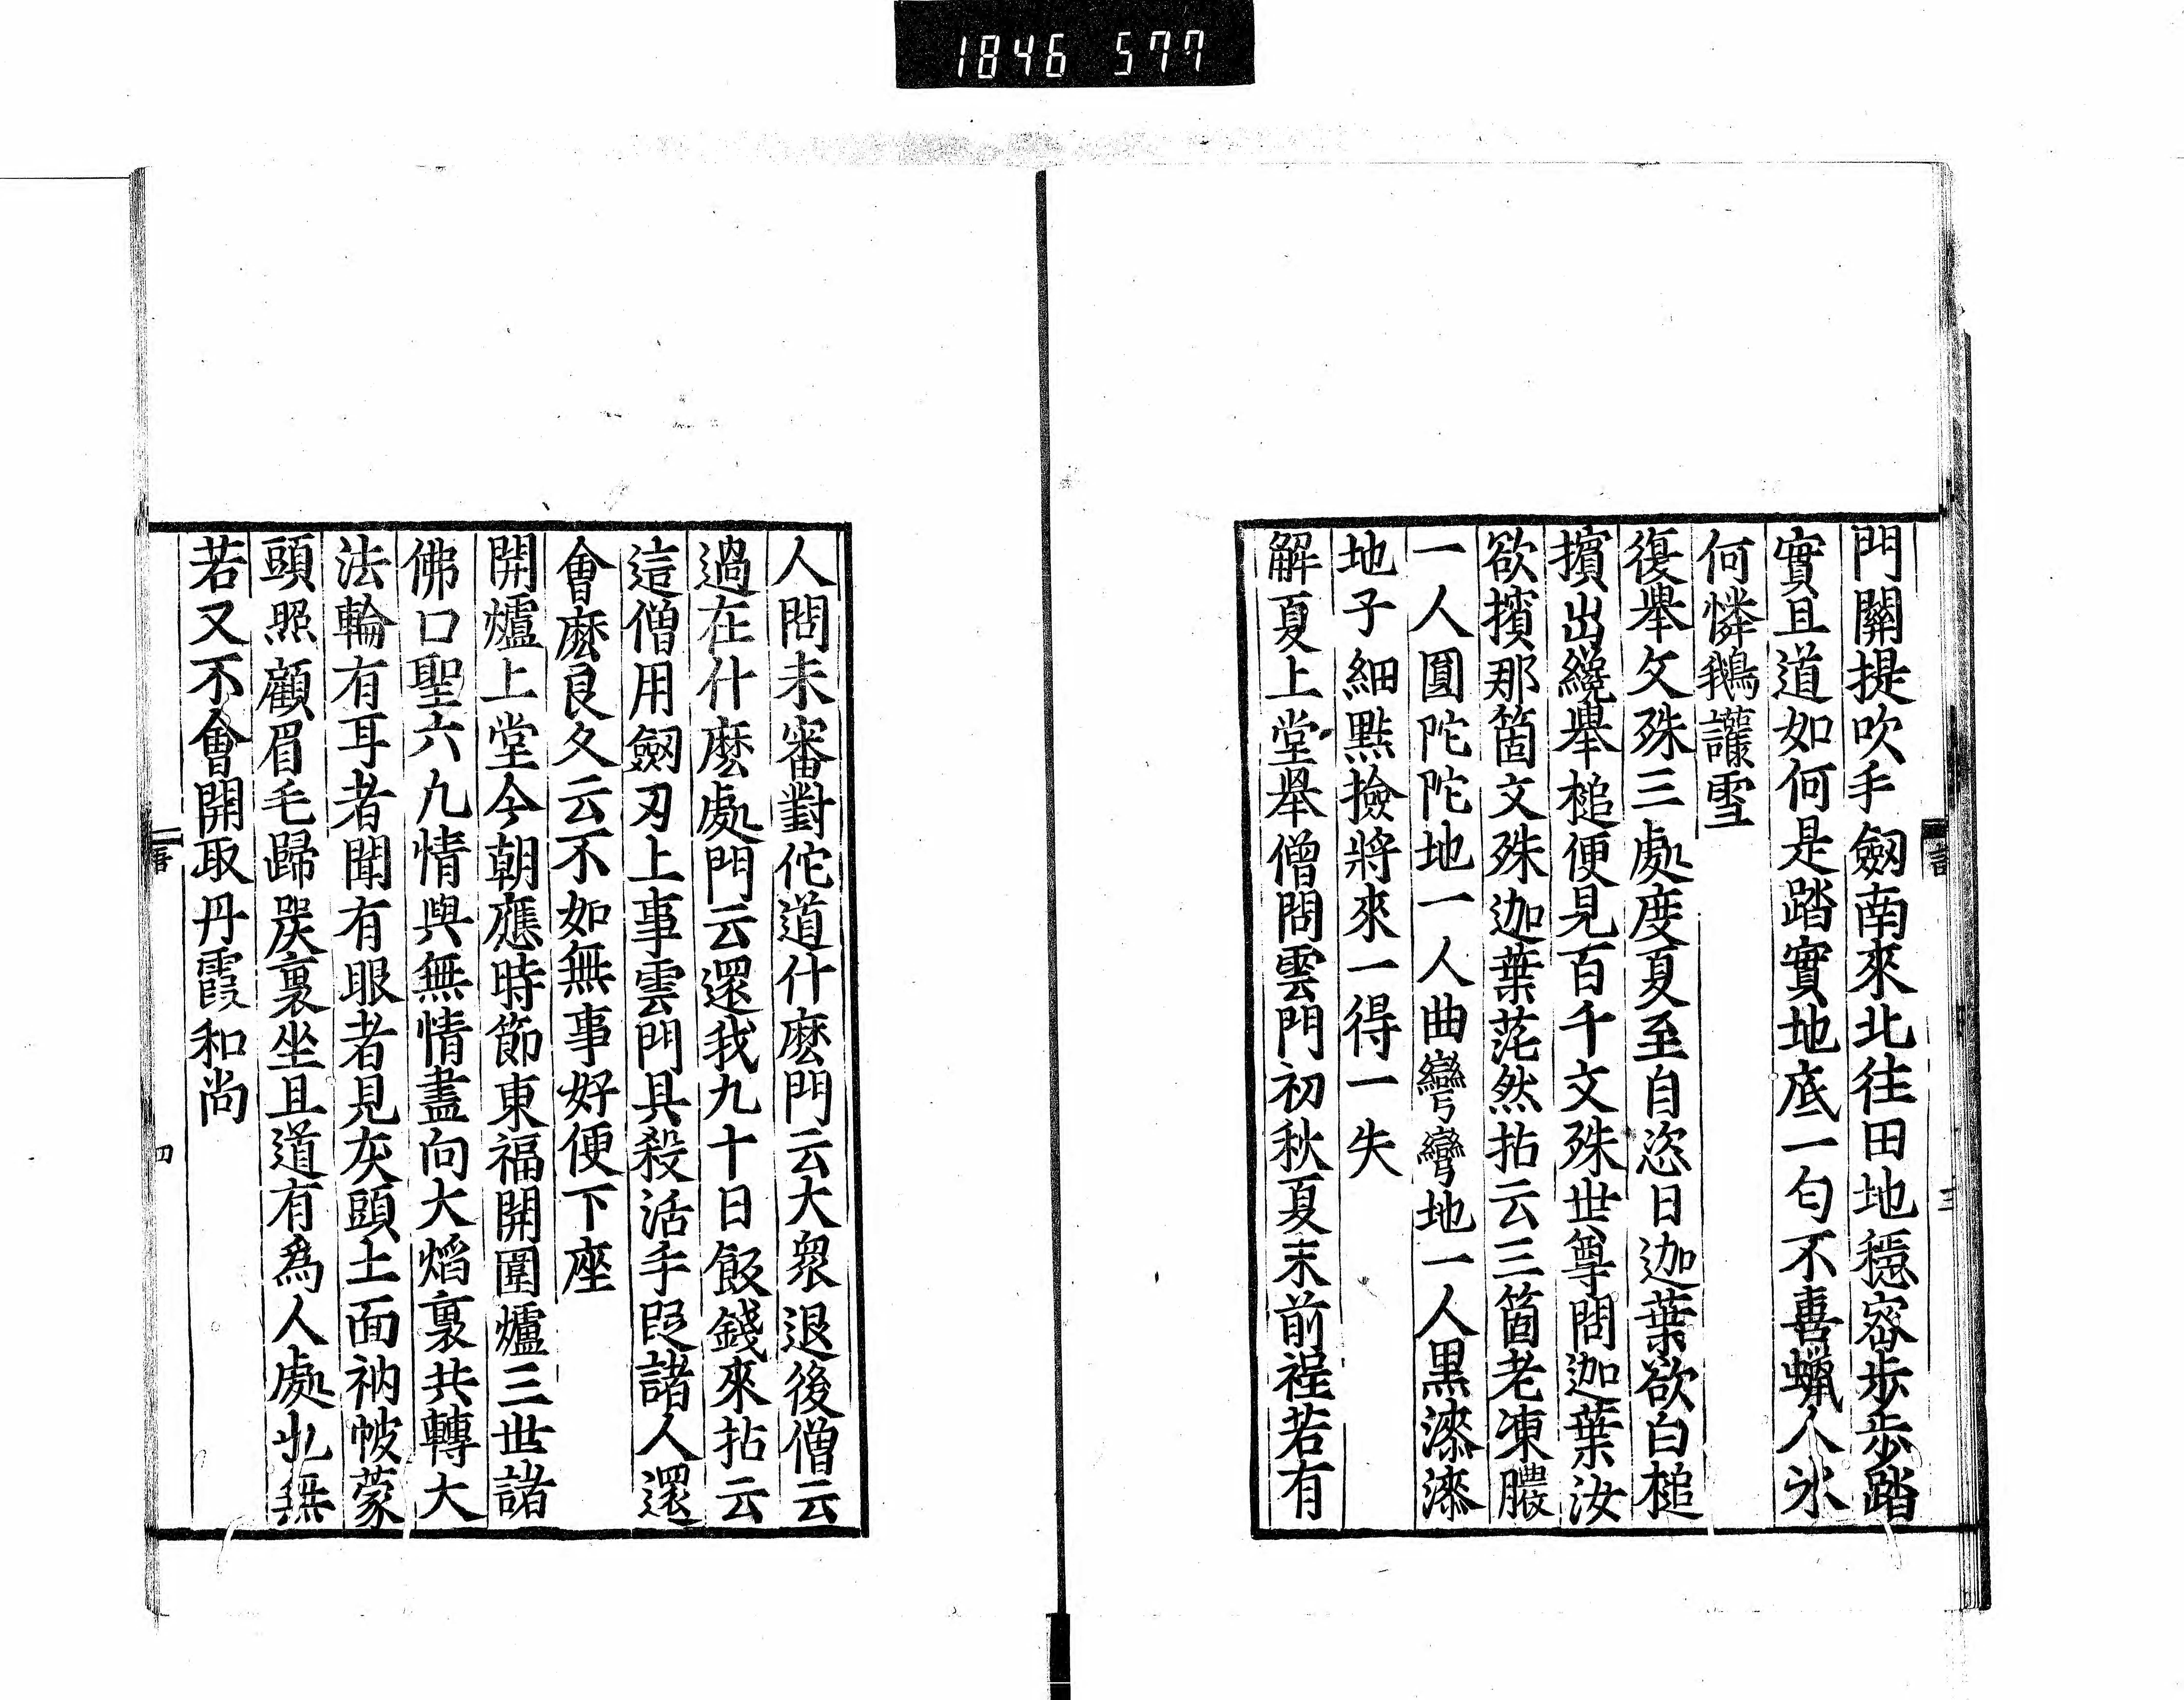 1846 577
門關提吹手劔南來北往田地穩密步步踏
實且道如何是踏實地底一句不喜蠟人氷
何憐鵝護雪
復舉文殊三處度夏至自恣日迦葉欲白槌
擯出纔舉槌便見百千文殊世尊問迦葉汝
欲擯那箇文殊迦葉茫然拈云三箇老凍膿
一人圓陀陀地一人曲彎彎地一人黑漆漆
地子細點撿將來一得一失
解夏上堂舉僧問雲門初秋夏末前程若有
人問未審對佗道什麽門云大衆退後僧云
過在什麽處門云還我九十日飯錢來拈云
這僧用劔刃上事雲門具殺活手段諸人還
會麽良久云不如無事好便下座
開爐上堂今朝應時節東福開圍爐三世諸
佛口聖六九情與無情盡向大熖裏共轉大
法輪有耳者聞有眼者見灰頭土面衲帔蒙
頭照顧眉毛歸炭裏坐且道有爲人處也無
若又不會開取丹霞和尚
語
三
四